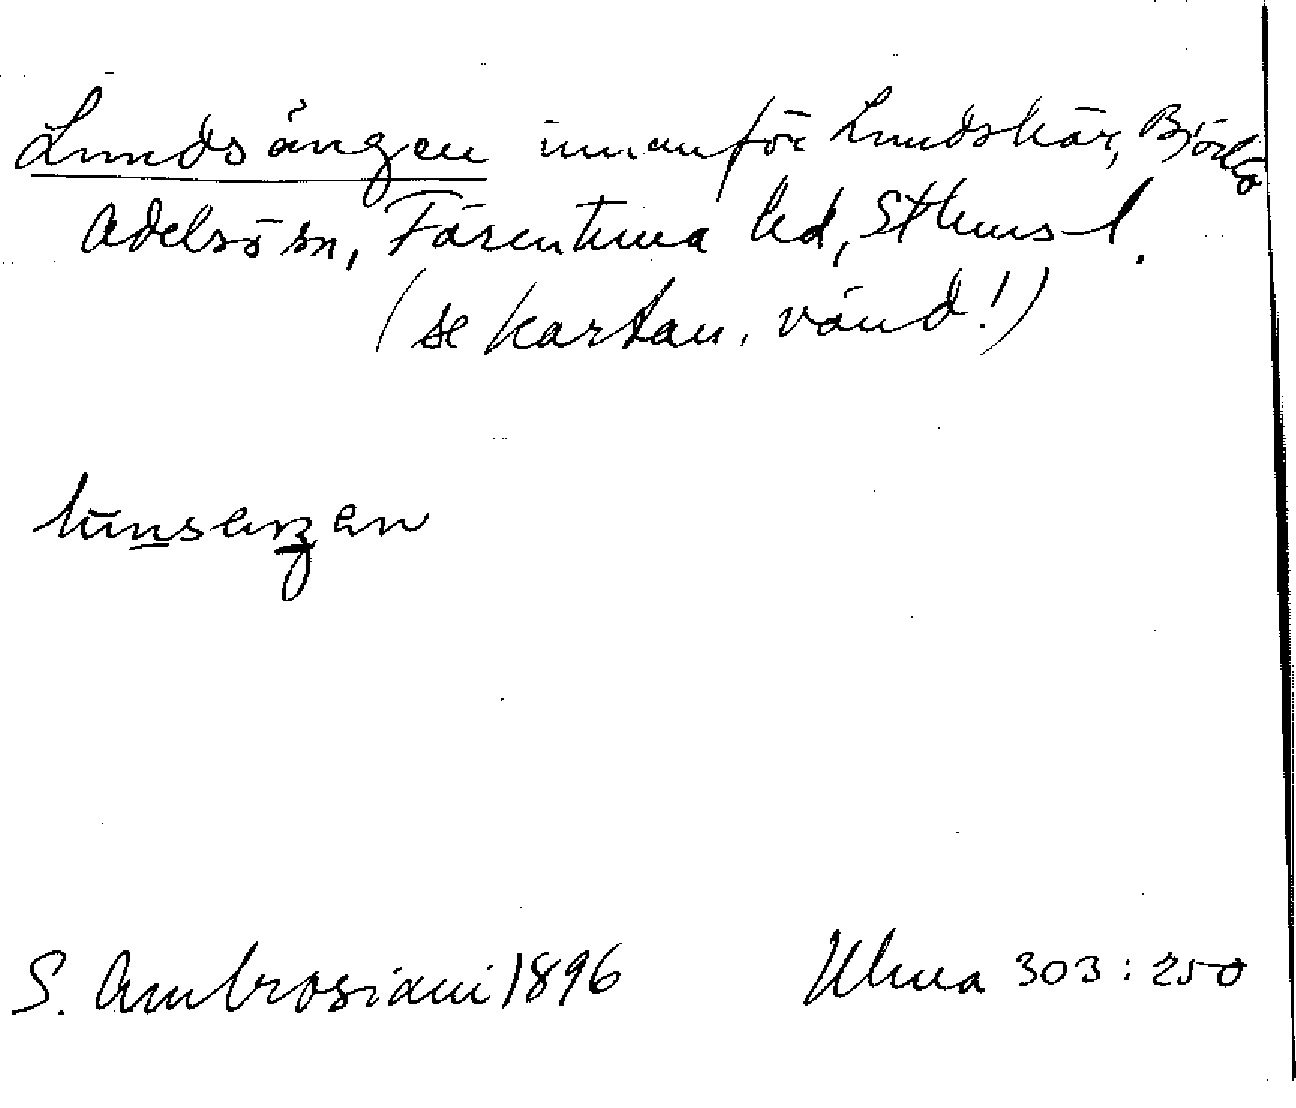 Lundsängen innanför Lundskär, Björkö
Adelsö sn, Färentuna hd, Sthms l.
(se kartan, vänd!)
S. Ambrosiani 1896 Ulma 303:250